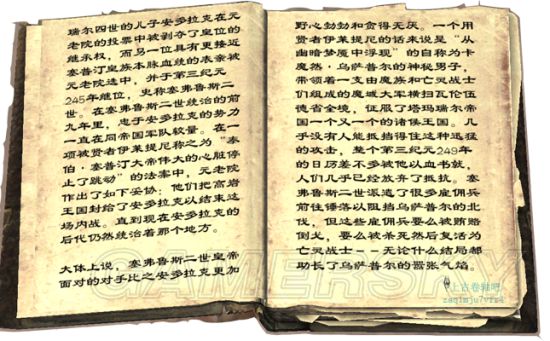 瑞尔四世的儿子安多拉克在元
老院的投票中被剥夺了皇位的
继承权，而另一位具有更接近
塞普汀皇族本脉血统的表亲被
元老院选中，并于第三纪元
245年继位，史称塞弗鲁斯二
世。在塞弗鲁斯二世统治的前
九年里，忠于安多拉克的势力
一直在同帝国军队较量。在一
项被贤者伊莱提尼称之为“泰
伯·塞普汀大帝伟大的心脏停
止了跳动”的法案中，元老院
作出了如下妥协：他们把高岩
王国封给了安多拉克以结束这
场内战。直到现在安多拉克的
后代仍然统治着那个地方。
大体上说，塞弗鲁斯二世皇帝
面对的对手比之安多拉克更加
野心勃勃和贪得无厌。一个用
贤者伊莱提尼的话来说是“从
幽暗梦魇中浮现”的自称为卡
魔然·乌萨普尔的神秘男子，
带领着一支由魔族和亡灵战士
们组成的魔域大军横扫瓦伦伍
德省全境，征服了塔玛瑞尔帝
国一个又一个的诸侯王国。几
乎没有人能抵挡得住这种迅猛
的攻击，整个第三纪元249年
的日历差不多被他以血书就，
人们几乎已经放弃了抵抗。塞
弗鲁斯二世派遣了很多雇佣兵
前往锤落以阻挡乌萨普尔的北
伐，但这些雇佣兵要么被贿赂
倒戈，要么被杀死然后复活为
亡灵战士--无论什么结局都
助长了乌萨普尔的嚣张气焰。
GAMERSKY
上古卷轴吧
zaqimju7vfr4